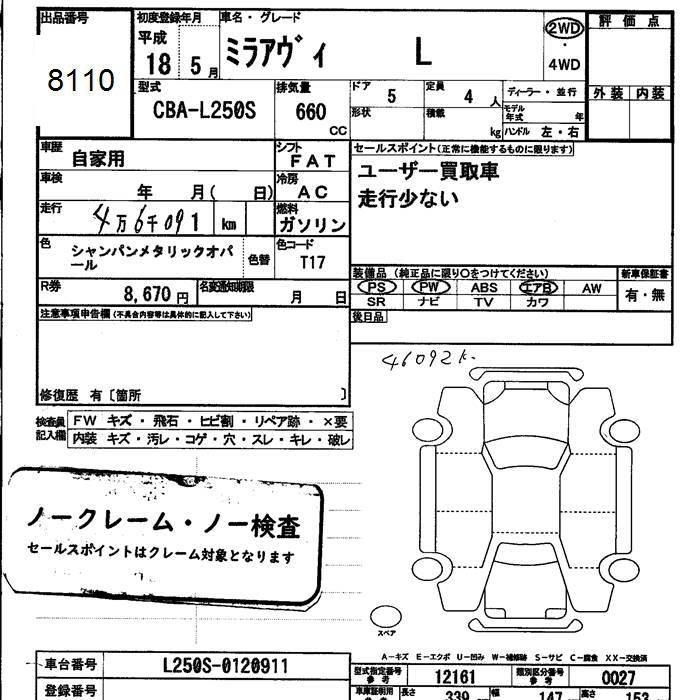 出品番号
8110
初度登録年月
平成
18 5月
車名・グレード
ミラアヴィ L
2WD
・
4WD
評価点
外装 内装
型式
CBA-L250S
排気量
660
CC
ドア
5
定員
4 人
形状
積載
kg
ディーラー・並行
モデル年式 年
ハンドル 左・右
車歴
自家用
シフト
FAT
車検
年 月( 日)
冷房
AC
走行
4万6千091 km
燃料
ガソリン
色
シャンパンメタリックオパール
色替
色コード
T17
R券
8,670円
名変通知期限
月 日
セールスポイント(正常に機能するものに限ります)
ユーザー買取車
走行少ない
装備品(純正品に限り○をつけてください)
PS PW ABS エアB AW
SR ナビ TV カワ
新車保証書
有・無
後日品
注意事項申告欄(不具合内容等は具体的に記入して下さい)
修復歴 有〔箇所 〕
検査員記入欄
FW キズ・飛石・ヒビ割・リペア跡・×要
内装 キズ・汚レ・コゲ・穴・スレ・キレ・破レ
46092k.
ノークレーム・ノー検査
セールスポイントはクレーム対象となります
スペア
A-キズ E-エクボ U-凹み W-補修跡 S-サビ C-腐食 XX-交換済
車台番号
L250S-0120911
登録番号
型式指定番号
参考
12161
類別区分番号
参考
0027
車庫証明用
長さ
339
幅
147
高さ
153